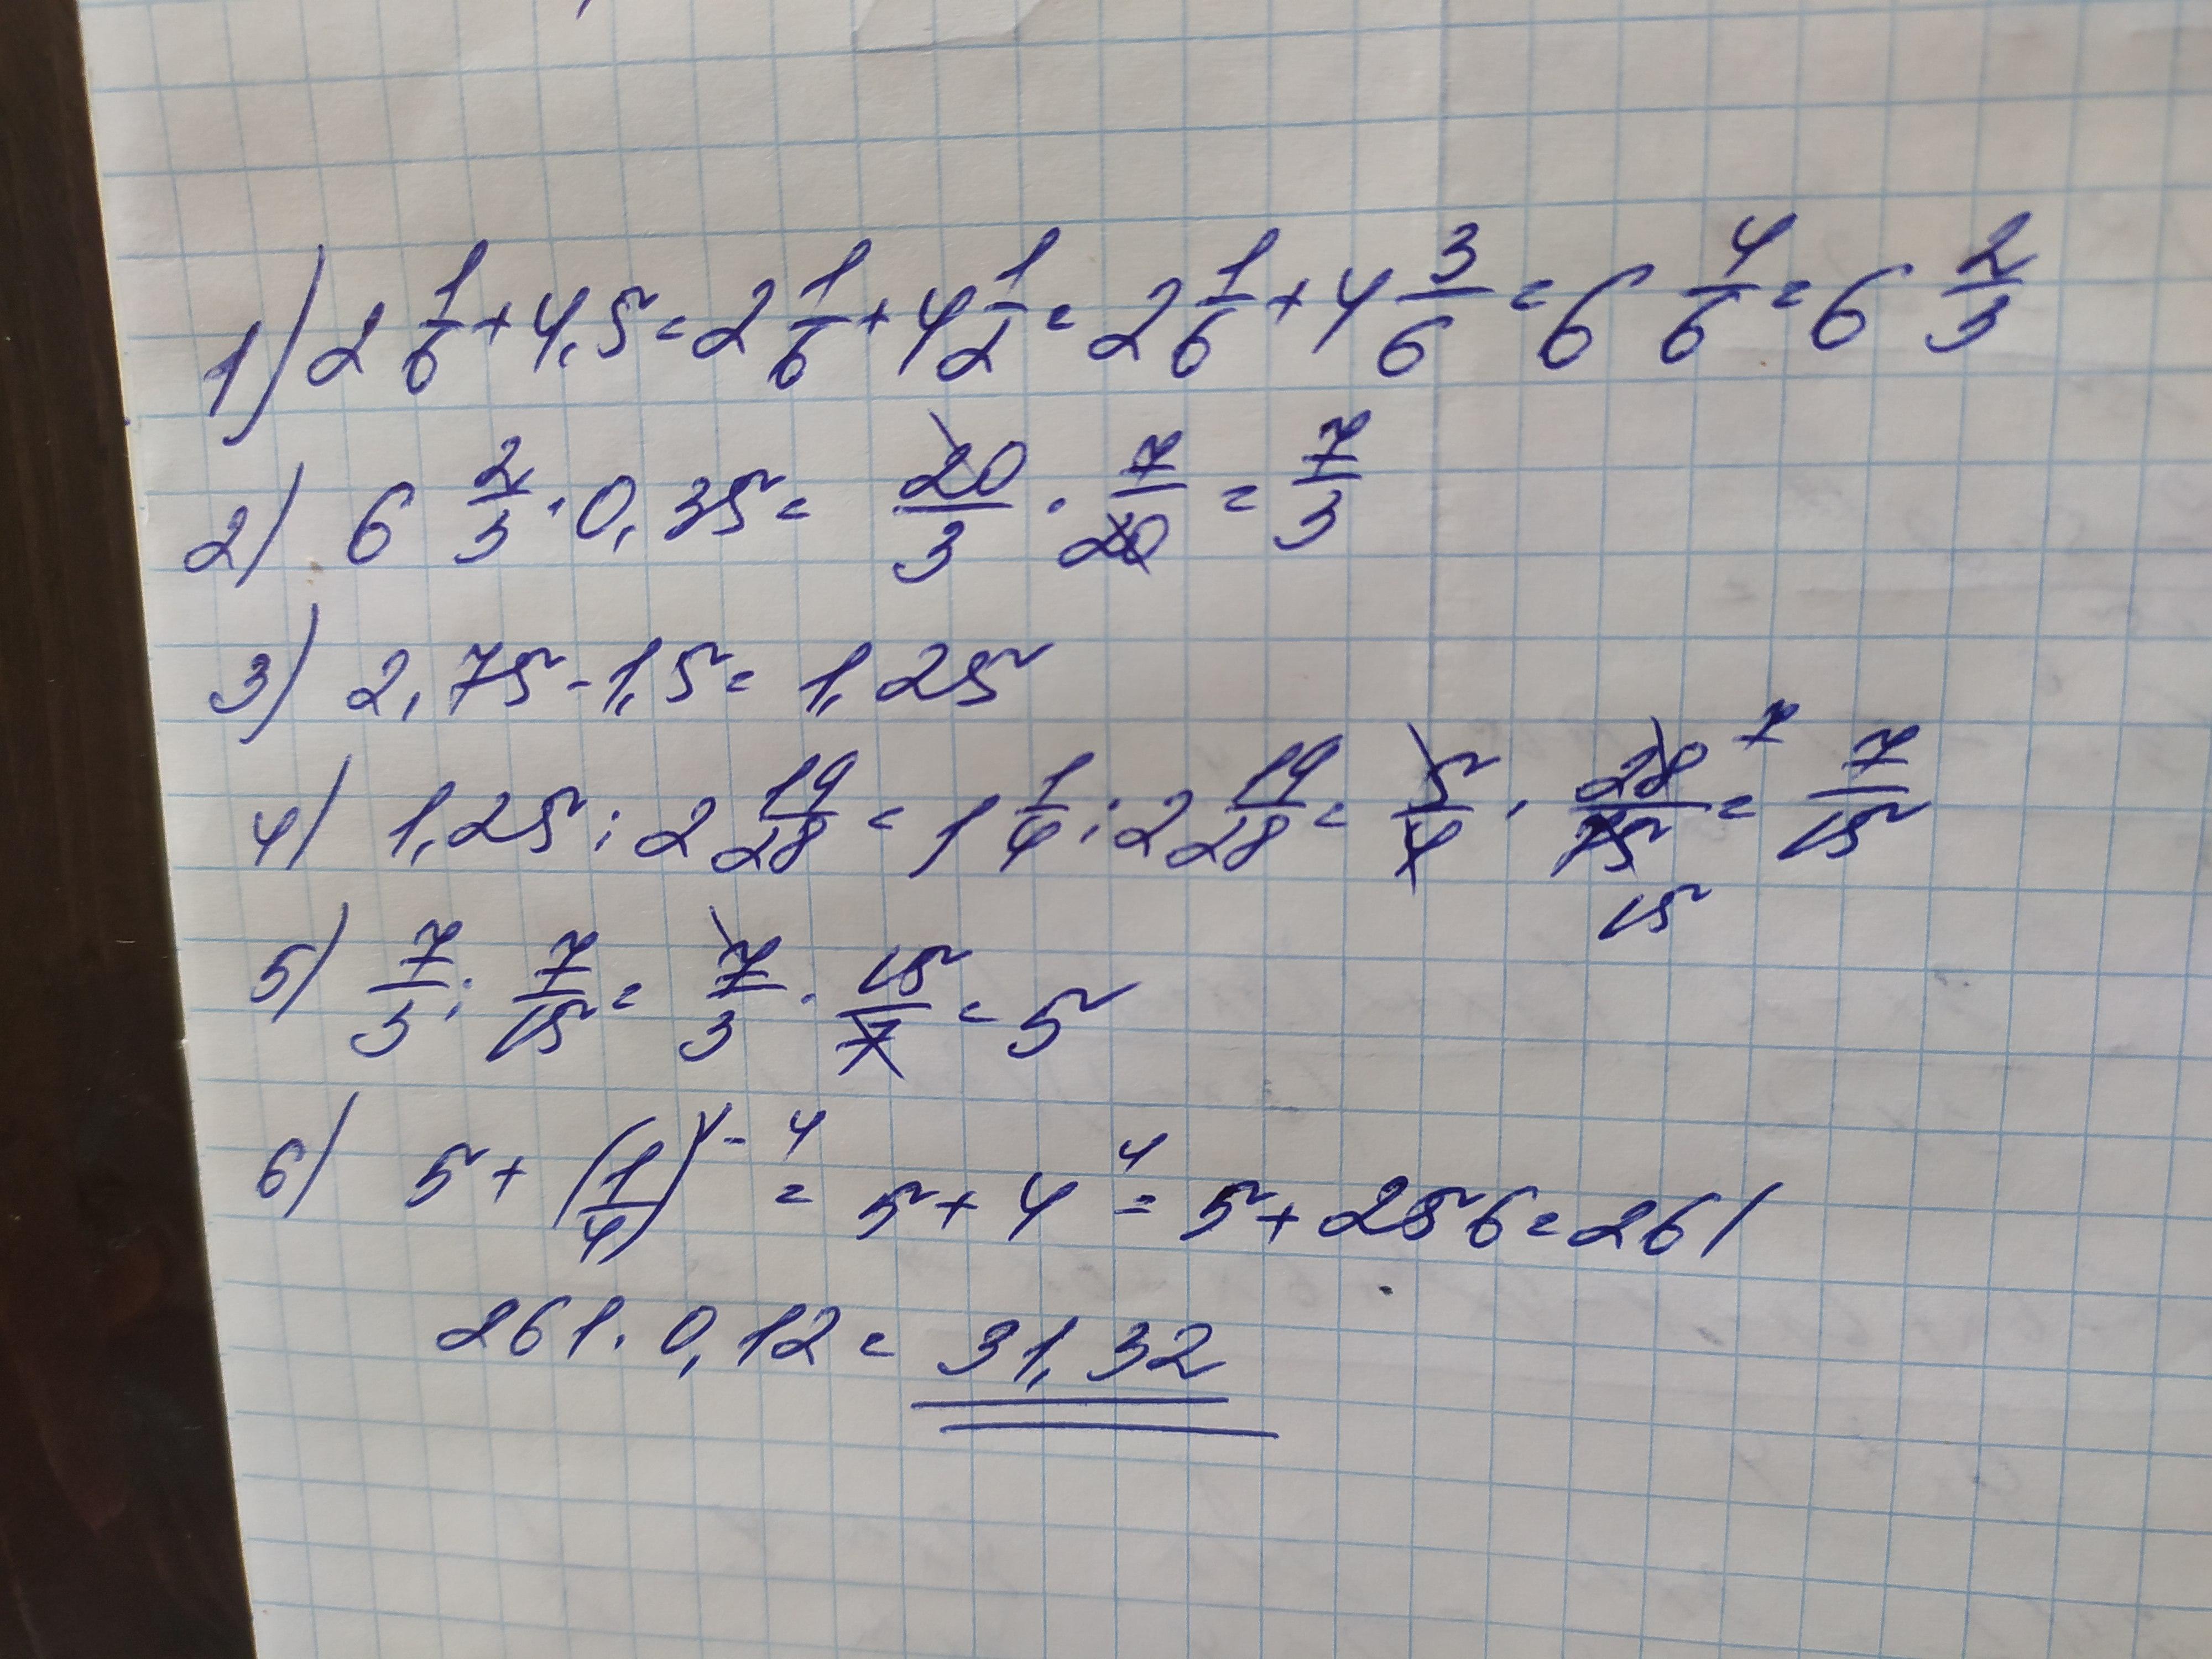 1) 2 1/6 + 4,5 = 2 1/6 + 4 1/2 = 2 1/6 + 4 3/6 = 6 4/6 = 6 2/3
2) 6 2/3 · 0,35 = 20/3 · 7/20 = 7/3
3) 2,75 - 1,5 = 1,25
4) 1,25 : 2 19/28 = 1 1/4 : 2 19/28 = 5/4 · 28/75 = 7/15
7
15
5) 7/3 : 7/15 = 7/3 · 15/7 = 5
6) 5 + (1/4)^-4 = 5 + 4^4 = 5 + 256 = 261
261 · 0,12 = 31,32